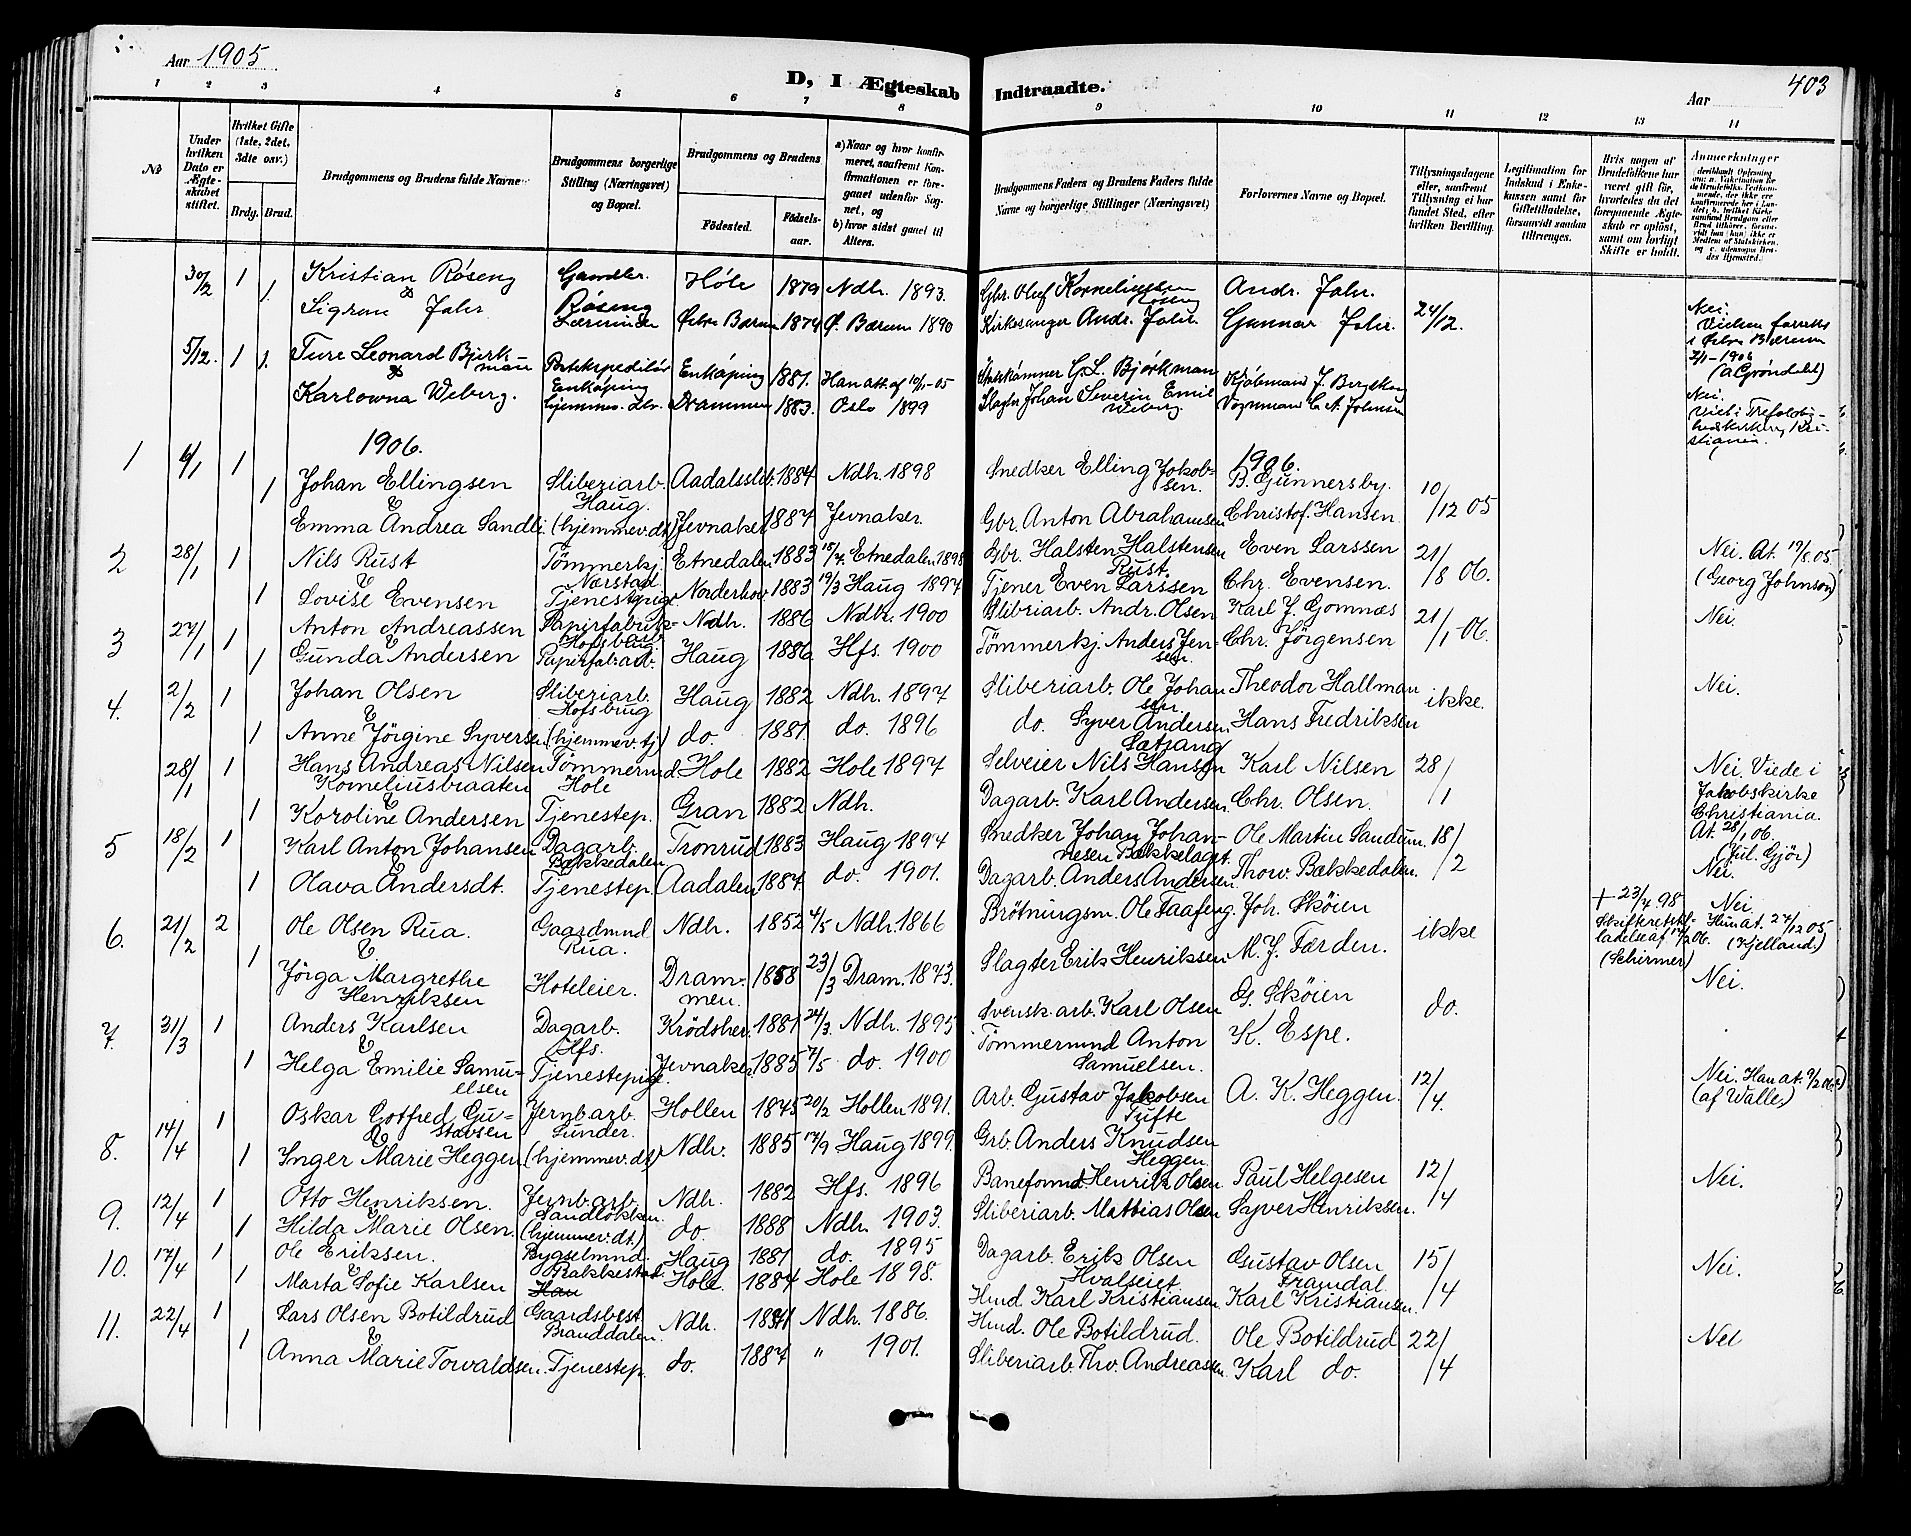 Aar 1905
D, I Ægteskab Indtraadte.
403
Aar
1 2 3 4 5 6 7 8 9 10 11 12 13 14
No
Under hvilken Dato er Ægteskabet stiftet.
Hvilket Gifte (1ste, 2det, 3die osv.)
Brdg. Brud.
Brudgommens og Brudens fulde Navne
Brudgommens borgerlige Stilling (Næringsvei) og Bopæl.
Brudgommens og Brudens
Fødested. Fødselsaar.
a) Naar og hvor konfirmeret, saafremt Konfirmationen er foregaaet udenfor Sognet, og
b) hvor sidst gaaet til Alters.
Brudgommens Faders og Brudens Faders fulde Navne og borgerlige Stillinger (Næringsvei)
Forlovernes Navne og Bopæl.
Tillysningsdagene eller, saafremt Tillysning ei har fundet Sted, efter hvilken Bevilling.
Legitimation for Indskud i Enkekassen samt for Giftetilladelse, forsaavidt saadan tiltrænges.
Hvis nogen af Brudefolkene har været gift før, hvorledes da det foregaaende Ægteskab er opløst, samt om lovligt Skifte er holdt.
Anmerkninger
30/12 1 Kristian Røseng Gaardbr. Hole 1879 Ndh. 1893. Gbr. Oluf Kornelius­sen Røseng Andr. Jahr. 24/12. Nei.
1. Sigrun Jahr Røseng Lærerinde Østre Bærum 1874 Ø. Bærum 1890 Kirkesanger Andr. Jahr. Gunnar Jahr. Vielsen foretat i Østre Bærum 2/1-1906 (A Grøndahl)
5/12. 1 Ture Leonard Bjørkman Enkøping 1881. Han att. af 12/1-05 G. L. Bjørkman Kjøbmand J. Bergsten Nei.
1. Karlowna Weberg. Enkøping hjemmev. dtr. Drammen 1883. Oslo 1899 Slagter Johan Severin Emil Weberg Vognmand C. A. Johnsen Viet i Trefoldighedskirken, Kristiania.
1906. 1906.
1 6/1 1 Johan Ellingsen Sliberiarb. Haug. Aadalsslib. 1884 Ndh. 1898 Snedker Elling Jakobsen. B. Gunnersby. 10/12 05
1 & Emma Andrea Sandli (hjemmev. dt.) Jevnaker 1884 Jevnaker. Gbr. Anton Abrahamsen Christof. Hansen.
2 28/1 1 Nils Rust Tømmerkj. Nærstad Etnedalen 1883 18/7. Etnedalen 1898 Gbr. Halsten Halstensen Rust. Even Larssen 21/8 06. Nei. At. 19/8 05
1 & Lovise Evensen Tjenestepige Norderhov 1883 19/3 Haug 1897 Tjener Even Larssen Chr. Evensen. (Georg Johnson)
3 27/1 1 Anton Andreassen Papirfabrik-arb. Hofsbrug Ndh. 1886 Ndh. 1900 Slibriarb. Andr. Olsen Karl J. Gomnæs 21/1 06. Nei.
1 & Gunda Andersen Papirfab. ad. Haug 1886. Hfs. 1900 Tømmerkj. Anders Jensen. Chr. Jørgensen
4. 2/2 1 Johan Olsen Sliberiarb. Hofsbrug Haug 1882 Ndh. 1897 Sliberiarb. Ole Johansen. Theodor Hallman ikke. Nei.
1 & Anne Jørgine Syversen (hjemmev. tj) do. 1881. do. 1896 do. Syver Andersen Sætrang Hans Fredriksen
28/1 1 Hans Andreas Nilsen Korneliusbraaten Tømmermd. Hole Hole 1882 Hole 1897 Selveier Nils Hansen Karl Nilsen 28/1 Nei. Viede i Jakobskirke Christiania.
1 & Karoline Andersen Tjenestep. Gran 1882 Ndh. Dagarb. Karl Andersen. Chr. Olsen. At. 28/1 06. (Jul. Gjør)
5 18/2 1 Karl Anton Johansen Dagarb. Bækkedalen Tronrud 1883 Haug 1897 Snedker Johan Johannesen Bækkelaget. Ole Martin Sandum. 18/2 Nei.
1 & Olava Andersdt. Tjenestep. Aadalen 1884. do. 1901. Dagarb. Anders Andersen. Thorv. Bækkedalen.
6. 21/2 2 Ole Olsen Rua. Gaardmnd. Rua. Ndh. 1852 4/5 Ndh. 1866 Brøtningsm. Ole Taafeng. Joh. Skøien ikke + 23/4 98 Skifteretstilladelse af 17/2 06. (Schirmer) Nei Hun at. 27/12 05. (Kjelland.)
1 & Jørga Margrethe Henriksen Hoteleier. Drammen. 1858 23/3 Dram. 1873. Slagter Erik Henriksen M. J. Færden.
7. 31/3 1 Anders Karlsen Dagarb. Hfs. Krödsher. 1881 24/3. Ndh. 1895 Svensk arb. Karl Olsen G. Skøien do. Nei.
1 & Helga Emilie Samuelsen Tjenestepige. Jevnaker. 1885 7/5 do. 1900 Tømmermnd Anton Samuelsen. K. Espe.
8. 14/4 1 Oskar Gotfred Gustavsen Jernb.arb. Sunder. Hollen 1875 20/2 Hollen 1891. Arb. Gustav Jakobsen Tufte A. K. Heggen. 12/4. Nei. Han at. 7/2 06. (af Walle)
1 & Inger Marie Heggen (hjemmev. dt.) Ndh. 1885 17/9 Haug 1899 Grb. Anders Knudsen Heggen.
9. 12/4 1 Otto Henriksen. Jernb.arb. Sandløkken. Ndh. 1882 Hfs. 1896 Baneformd. Henrik Olsen Paul Helgesen 12/4 Nei.
1 & Hilda Marie Olsen. (hjemmev. dt.) do. 1888 Ndh. 1903. Sliberiarb. Mathias Olsen Syver Henriksen.
10. 17/4 1 Ole Eriksen. Bygselmnd. Bakkestad. Haug 1881 do. 1895 Dagarb. Erik Olsen Hvalseiet Gustav Olsen Framdal. 15/4 Nei.
1 & Marta Sofie Karlsen Hole 1884 Hole 1898. Hmd. Karl Kristiansen Karl Kristiansen.
11. 22/4 1 Lars Olsen Botildrud Gaardsbest. Branddalen. Ndh. 1871 Ndh. 1886. Hmd. Ole Botildrud. Ole Botildrud 22/4 Nei
1 & Anna Marie Torvaldsen. Tjenestep. do. 1887 " 1901. Sliberiarb. Thv. Andreassen. Karl do.